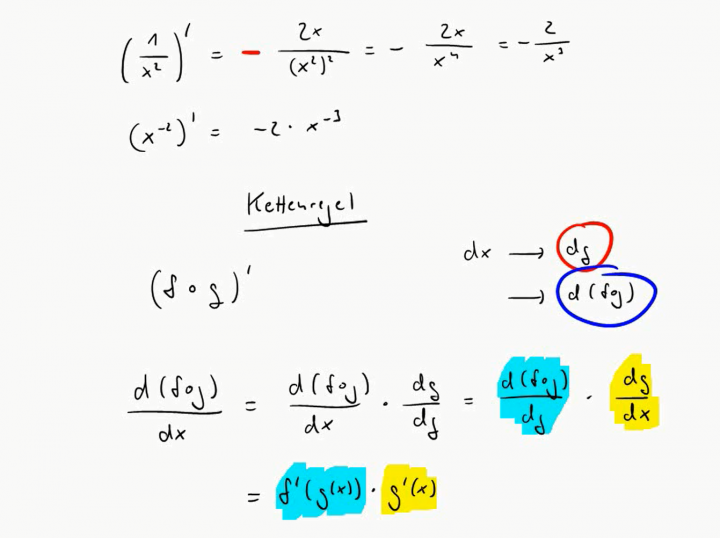 (1/x²)' = - 2x/(x²)² = - 2x/x⁴ = - 2/x³
(x⁻²)' = -2 · x⁻³
Kettenregel
dx → dg
(f ∘ g)' → d(f∘g)
d(f∘g)/dx = d(f∘g)/dx · dg/dg = d(f∘g)/dg · dg/dx
= f'(g(x)) · g'(x)